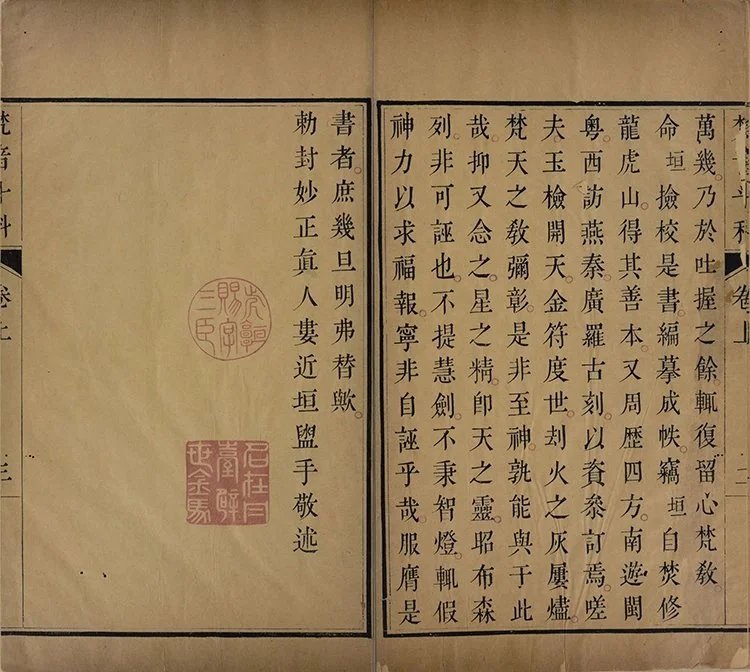 萬幾乃於吐握之餘輒復留心梵敎
命垣撿校是書編摹成帙竊垣自焚修
龍虎山得其善本又周歷四方南遊閩
粤西訪燕秦廣羅古刻以資叅訂焉嗟
夫玉檢開天金符度世刦火之灰屢燼
梵天之敎彌彰是非至神孰能與于此
哉抑又念之星之精卽天之靈昭布森
列非可誣也不提慧劍不秉智燈輒假
神力以求福報寧非自誣乎哉服膺是
書者庶幾旦明弗替歟
勅封妙正眞人婁近垣盥手敬述
賜字
梵音斗科
卷上
二
梵音斗科
卷上
三